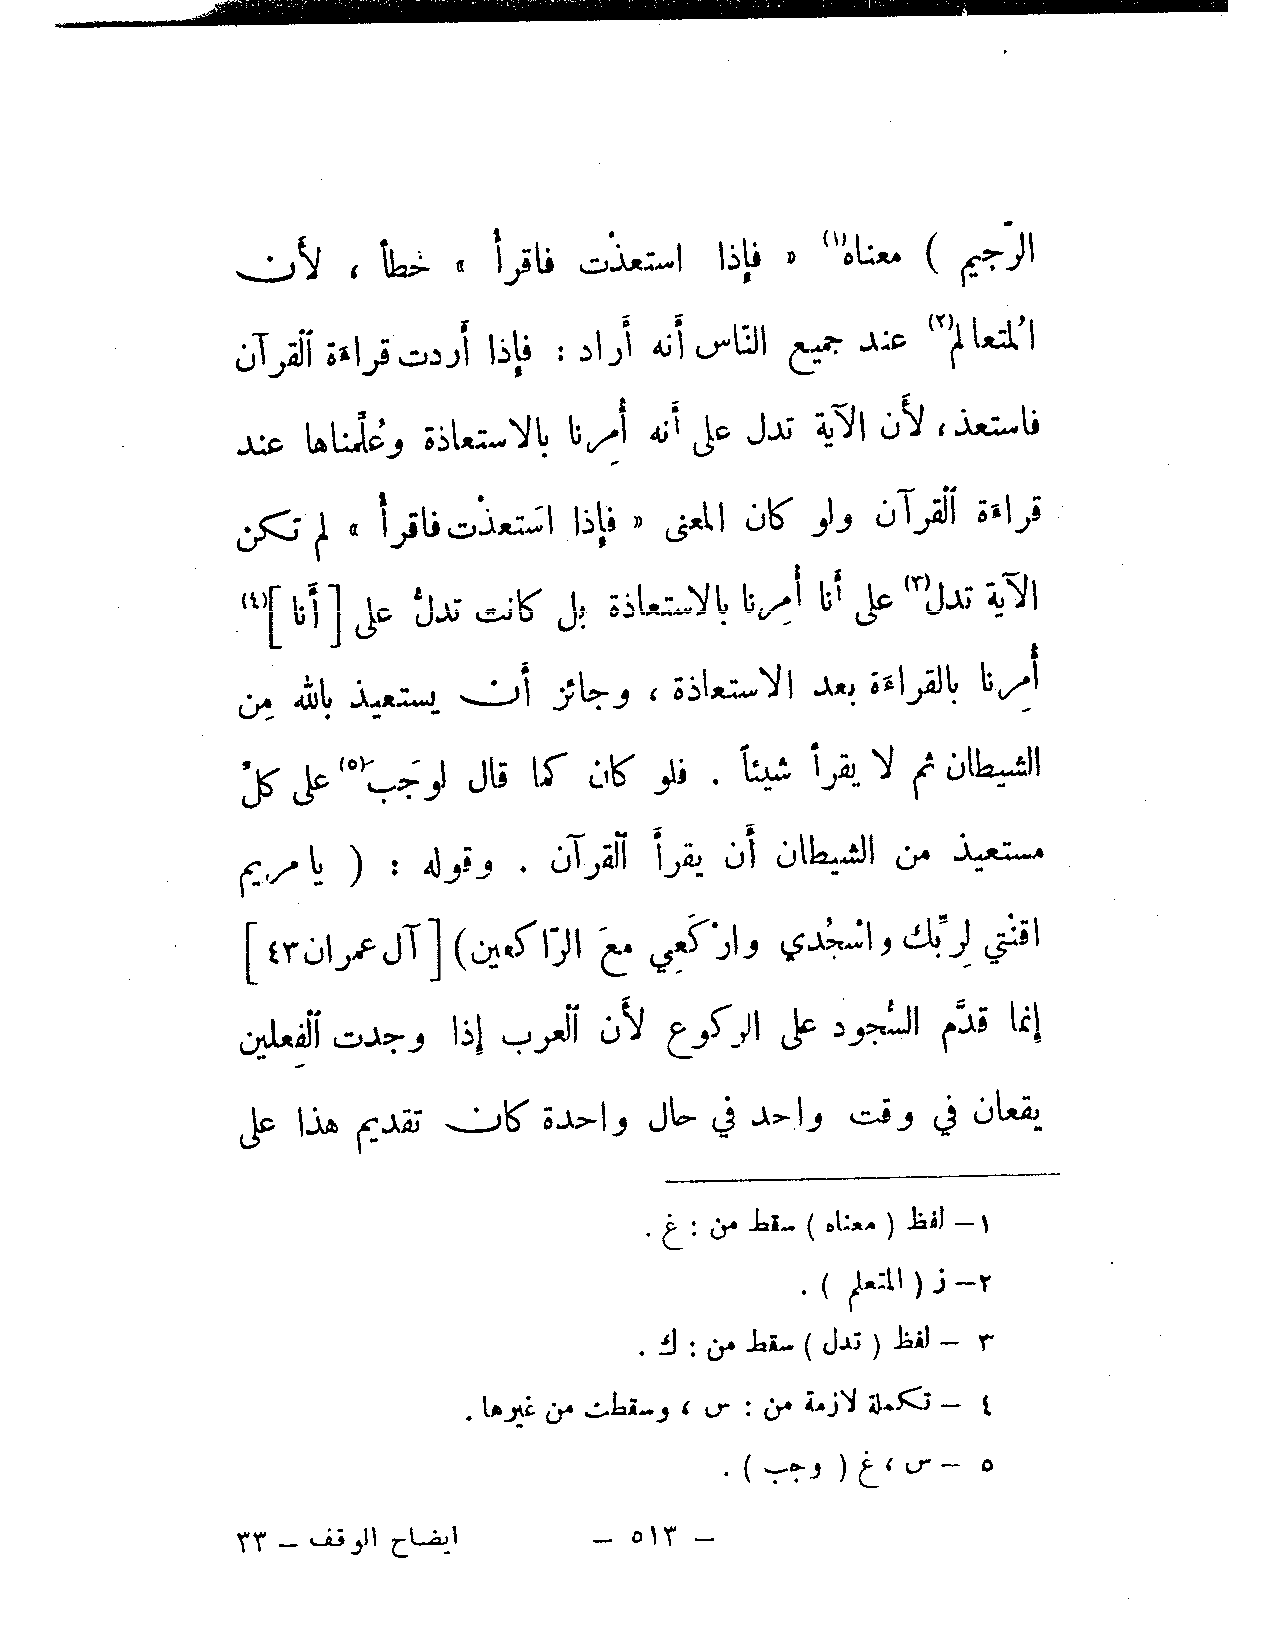 الرّجيم ) معناه(١) « فإذا استعذْت فاقرأ » خطأ ، لأن
المتعالم(٢) عند جميع النّاس أنه أراد : فإذا أردت قراءة القرآن
فاستعذ، لأن الآية تدل على أنه أُمِرنا بالاستعاذة وعُلِّمناها عند
قراءة القرآن ولو كان المعنى « فإذا استَعذْت فاقرأ » لم تكن
الآية تدل(٣) على أنا أُمِرنا بالاستعاذة بل كانت تدلُّ على [ أنا ](٤)
أُمِرنا بالقراءة بعد الاستعاذة ، وجائز أن يستعيذ بالله مِن
الشيطان ثم لا يقرأ شيئاً . فلو كان كما قال لوجَب(٥) على كلّ
مستعيذ من الشيطان أن يقرأ القرآن . وقوله : ( يا مريم
اقنُتي لِربِّك واسْجُدي وارْكَعِي معَ الرّاكعين ) [ آل عمران ٤٣ ]
إنما قدَّم السُّجود على الركوع لأن العرب إذا وجدت الفِعلين
يقعان في وقت واحد في حال واحدة كان تقديم هذا على
١ – لفظ ( معناه ) سقط من : غ .
٢ – ز ( المتعلم ) .
٣ – لفظ ( تدل ) سقط من : ك .
٤ – تكملة لازمة من : س ، وسقطت من غيرها .
٥ – س ، غ ( وجب ) .
– ٥١٣ – ايضاح الوقف – ٣٣